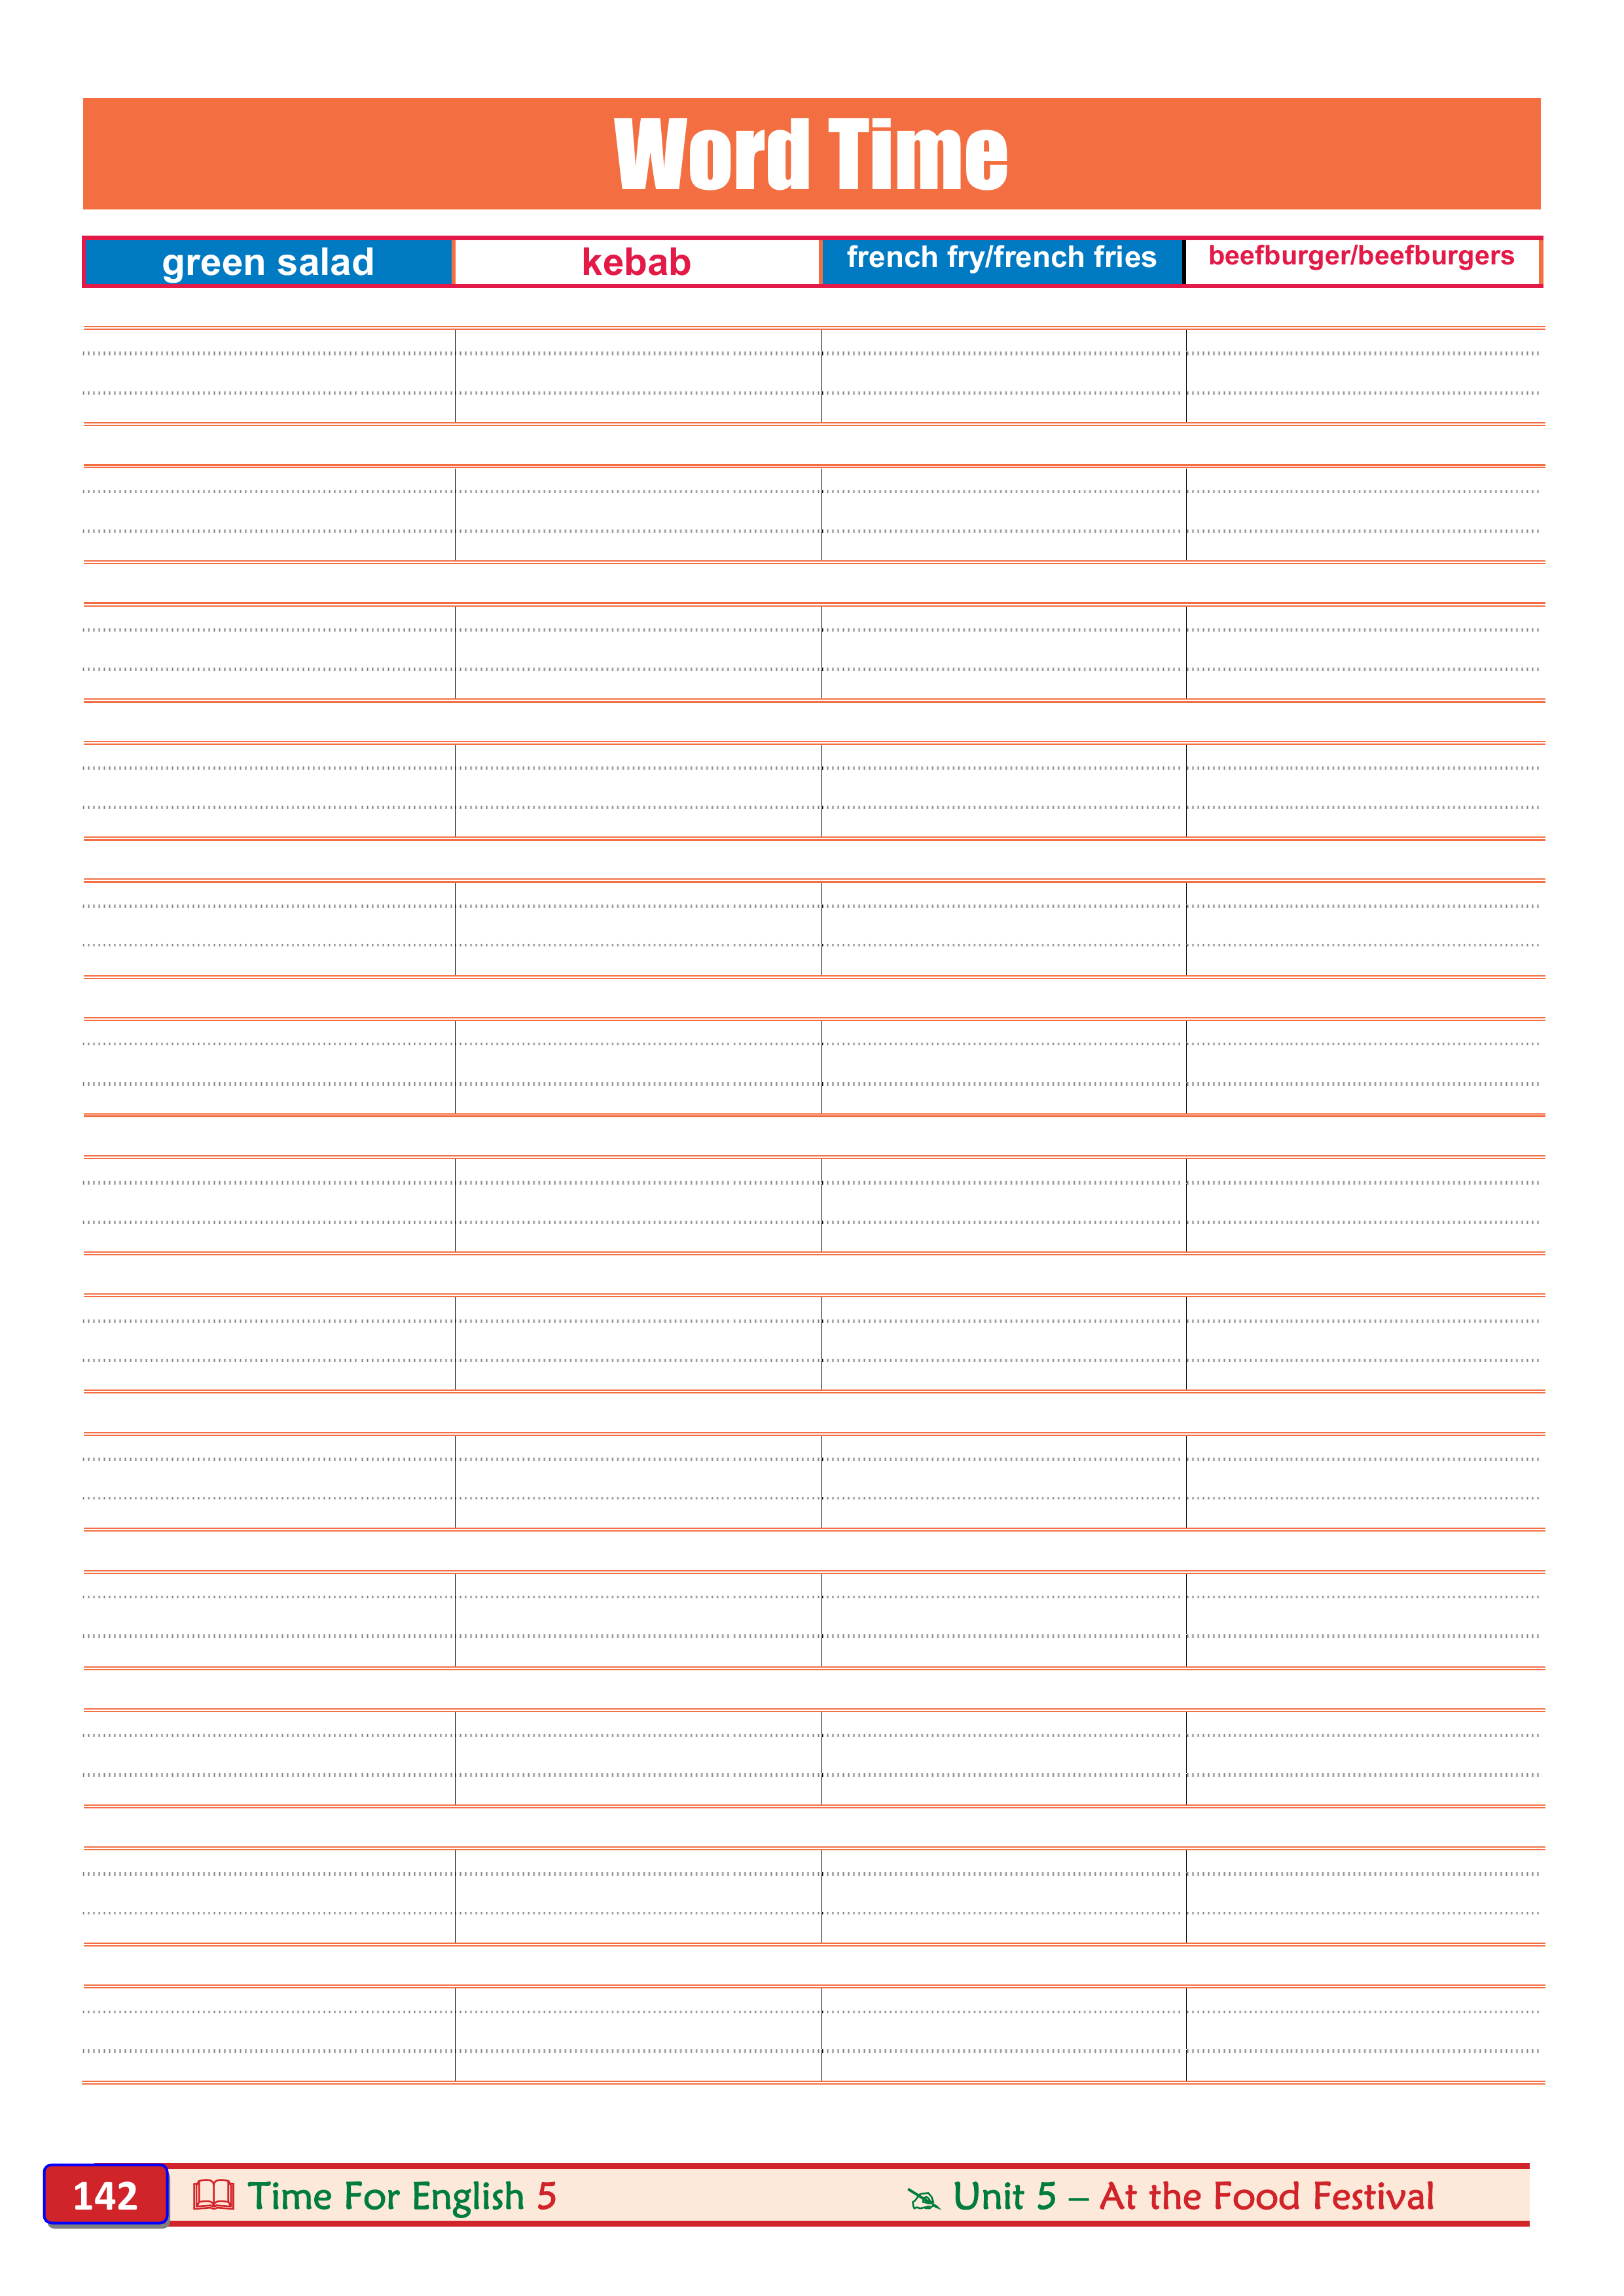 Word Time
green salad kebab french fry/french fries beefburger/beefburgers
142 Time For English 5 Unit 5 – At the Food Festival